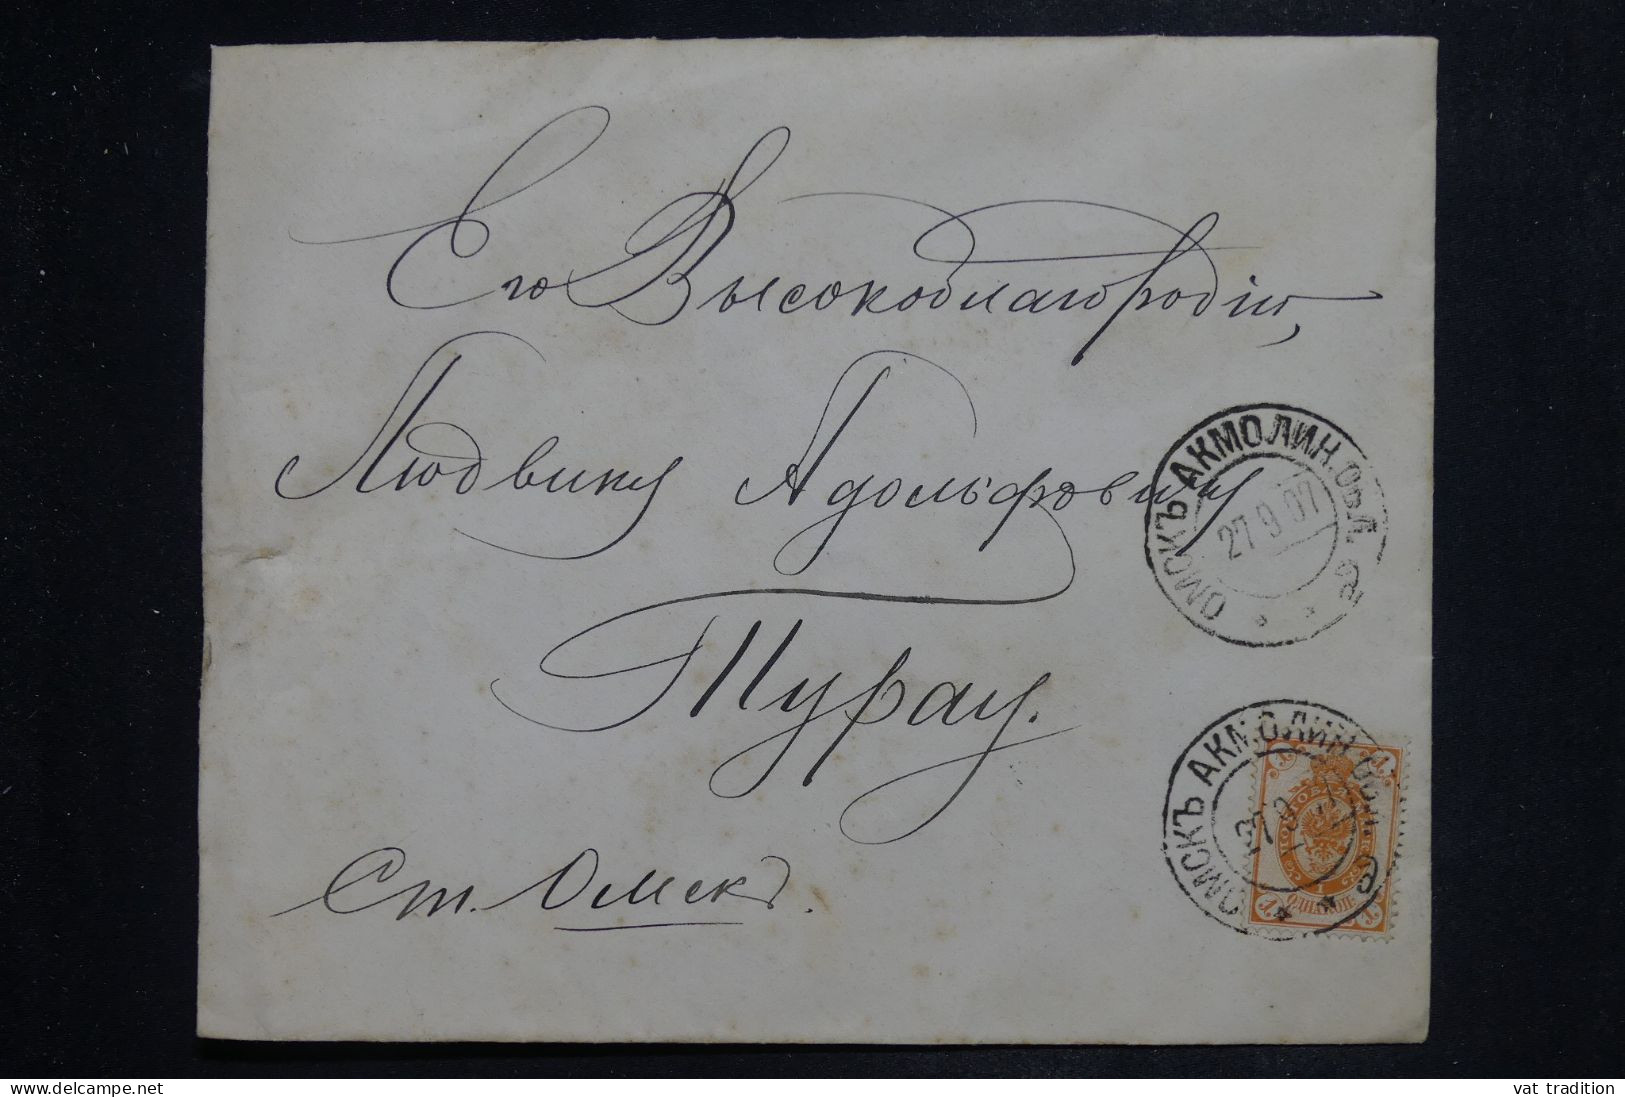 Его Высокоблагородію,
Людвику Адольфовичу
Турау.
Ст. Омскъ.
ОМСКЪ АКМОЛИН. ОБЛ.
27 9 07
ОМСКЪ АКМОЛИН. ОБЛ.
1 1
ОДНА КОП.
1 1
delcampe.net
vat tradition